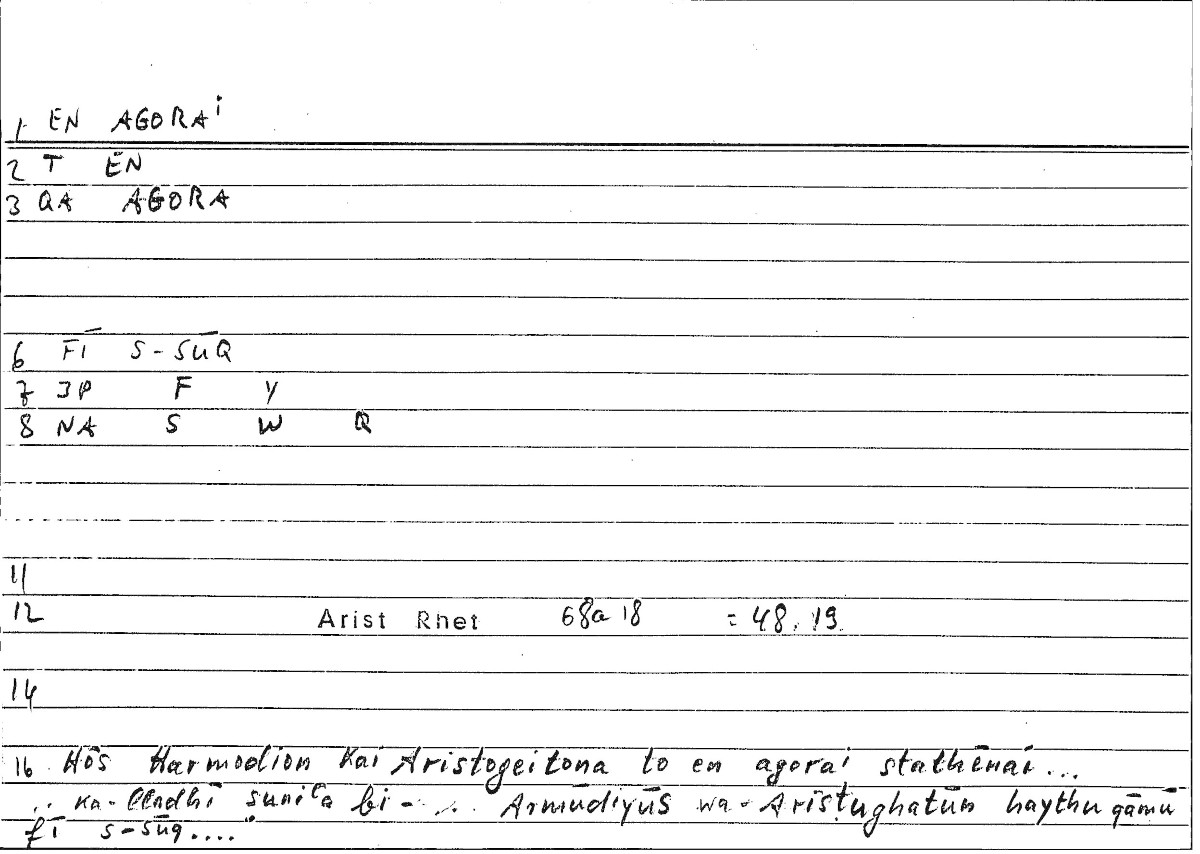 1 EN AGORAⁱ
2 T EN
3 QA AGORA
6 FĪ S-SŪQ
7 JP F Y
8 NA S W Q
11
12 Arist Rhet 68a 18 = 48, 19.
14
16 Hôs Harmodion kai Aristogeitona to en agoraⁱ stathēnai...
.. ka-lladhī suniʿa bi- ... Armūdiyūs wa-Arisṭughatūn haythu qāmū
fī s-sūq...."